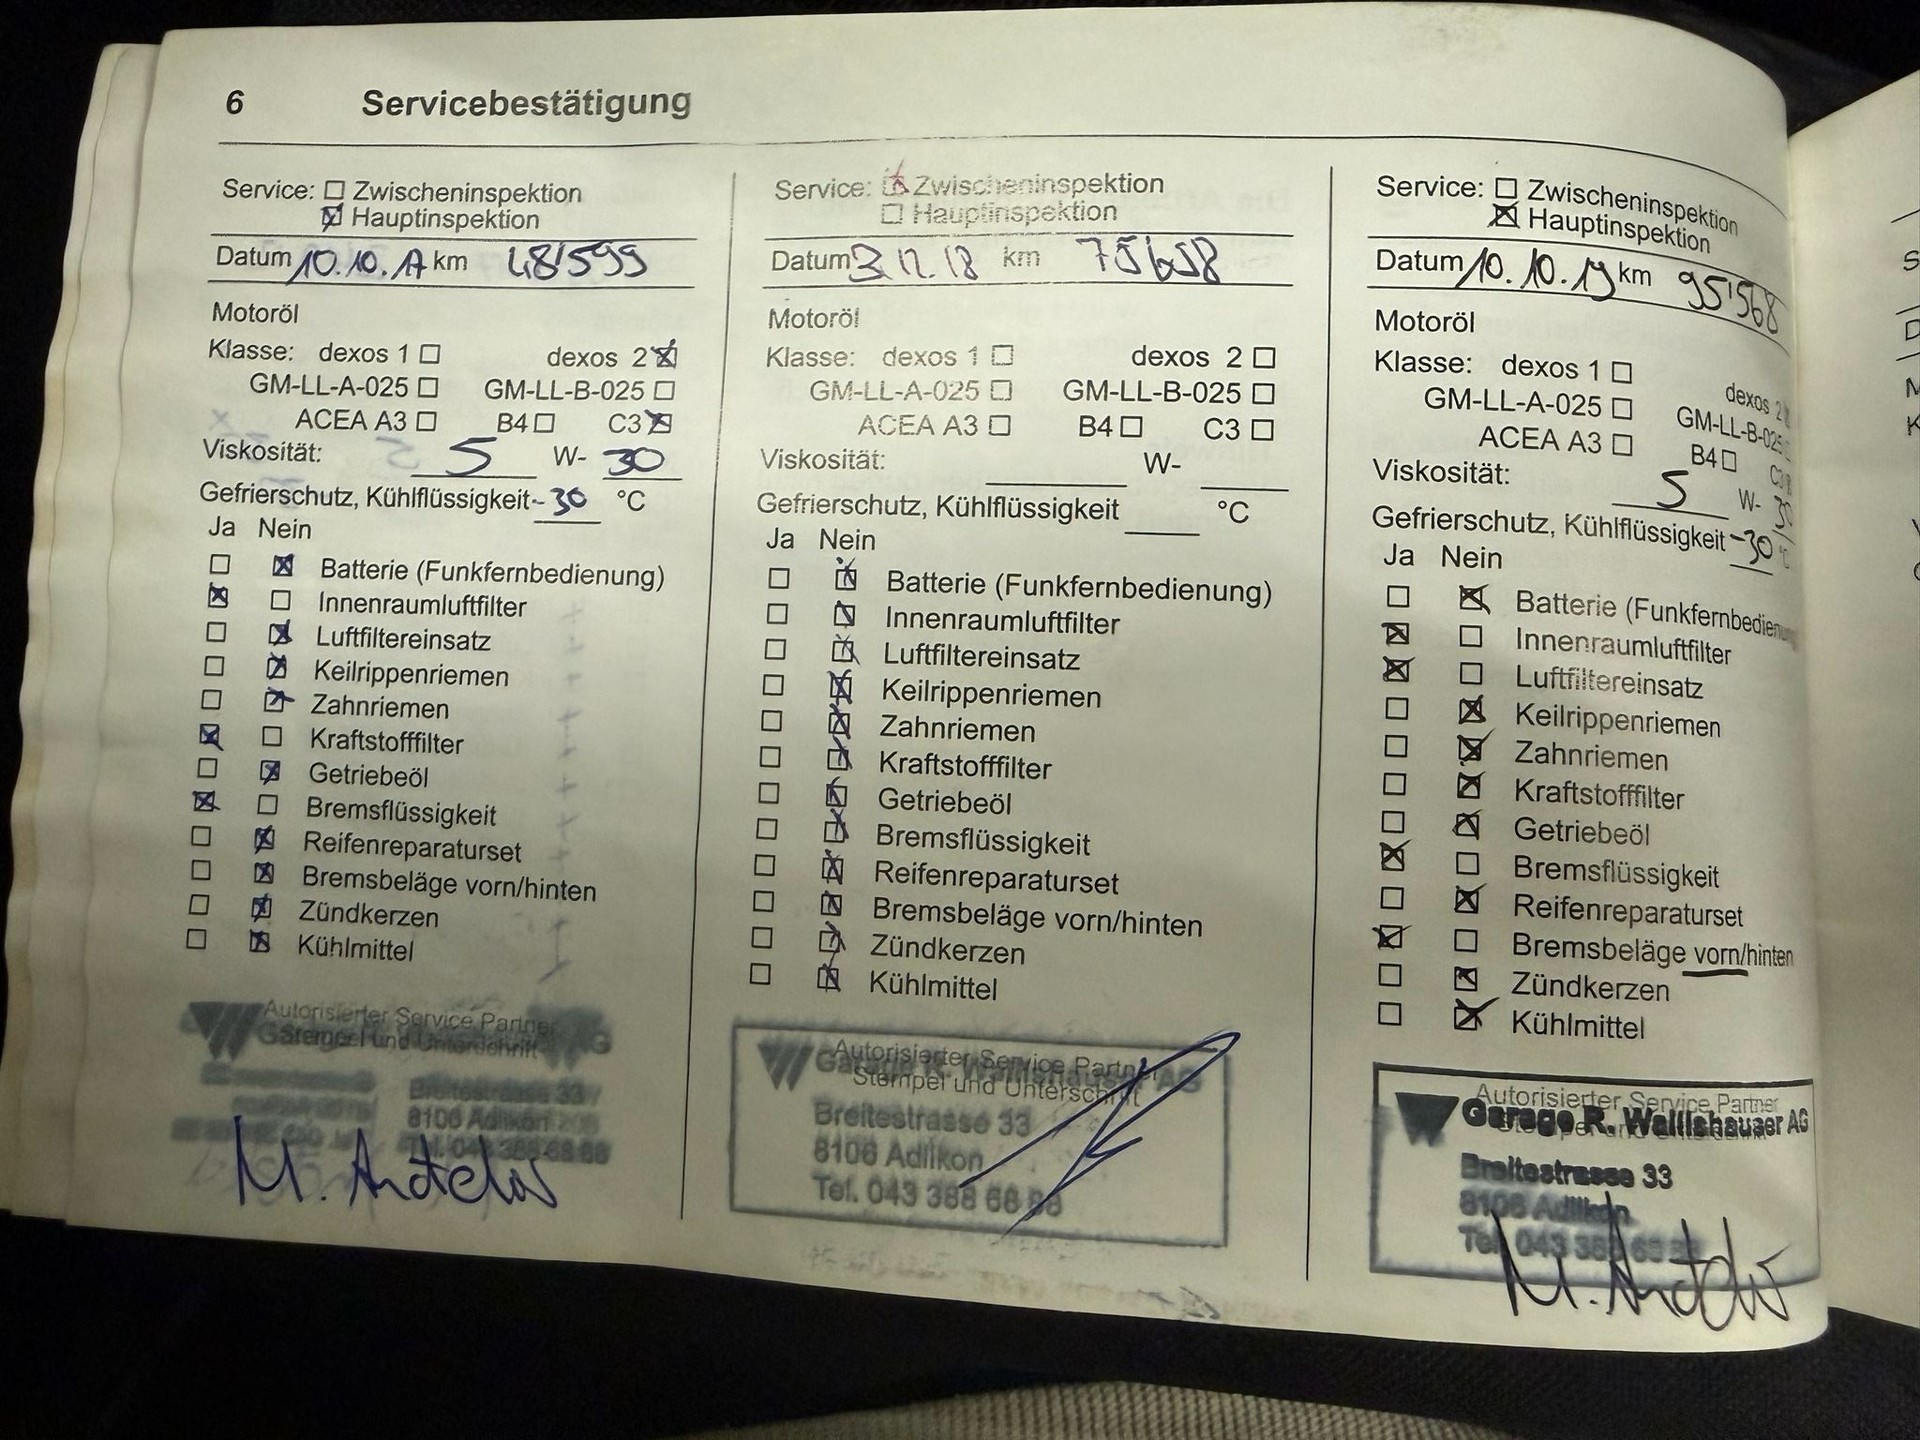 6 Servicebestätigung
Service: Zwischeninspektion
Hauptinspektion
Datum 10.10.17 km 48'599
Motoröl
Klasse: dexos 1 dexos 2
GM-LL-A-025 GM-LL-B-025
ACEA A3 B4 C3
Viskosität: 5 W- 30
Gefrierschutz, Kühlflüssigkeit -30 °C
Ja Nein
Batterie (Funkfernbedienung)
Innenraumluftfilter
Luftfiltereinsatz
Keilrippenriemen
Zahnriemen
Kraftstofffilter
Getriebeöl
Bremsflüssigkeit
Reifenreparaturset
Bremsbeläge vorn/hinten
Zündkerzen
Kühlmittel
Autorisierter Service Partner
Stempel und Unterschrift
Breitestrasse 33
8106 Adlikon
Service: Zwischeninspektion
Hauptinspektion
Datum 3.12.18 km 75658
Motoröl
Klasse: dexos 1 dexos 2
GM-LL-A-025 GM-LL-B-025
ACEA A3 B4 C3
Viskosität: W-
Gefrierschutz, Kühlflüssigkeit °C
Ja Nein
Batterie (Funkfernbedienung)
Innenraumluftfilter
Luftfiltereinsatz
Keilrippenriemen
Zahnriemen
Kraftstofffilter
Getriebeöl
Bremsflüssigkeit
Reifenreparaturset
Bremsbeläge vorn/hinten
Zündkerzen
Kühlmittel
Autorisierter Service Partner
Garage R. Wallishauser AG
Stempel und Unterschrift
Breitestrasse 33
8106 Adlikon
Tel. 043 388 68 88
Service: Zwischeninspektion
Hauptinspektion
Datum 10.10.19 km 95'568
Motoröl
Klasse: dexos 1 dexos 2
GM-LL-A-025 GM-LL-B-025
ACEA A3 B4 C3
Viskosität: 5 W- 30
Gefrierschutz, Kühlflüssigkeit -30 °C
Ja Nein
Batterie (Funkfernbedienung
Innenraumluftfilter
Luftfiltereinsatz
Keilrippenriemen
Zahnriemen
Kraftstofffilter
Getriebeöl
Bremsflüssigkeit
Reifenreparaturset
Bremsbeläge vorn/hinten
Zündkerzen
Kühlmittel
Autorisierter Service Partner
Garage R. Wallishauser AG
Breitestrasse 33
8106 Adlikon
Tel. 043 388 68 88